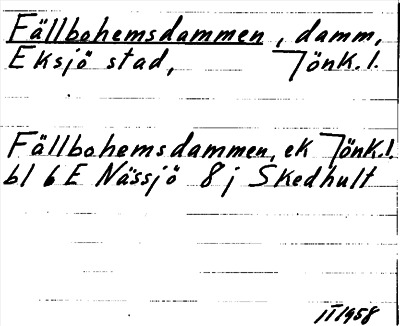 Fällbohemsdammen, damm,
Eksjö stad, Jönk.l.
Fällbohemsdammen, ek Jönk.l.
bl 6E Nässjö 8j Skedhult
II 1958